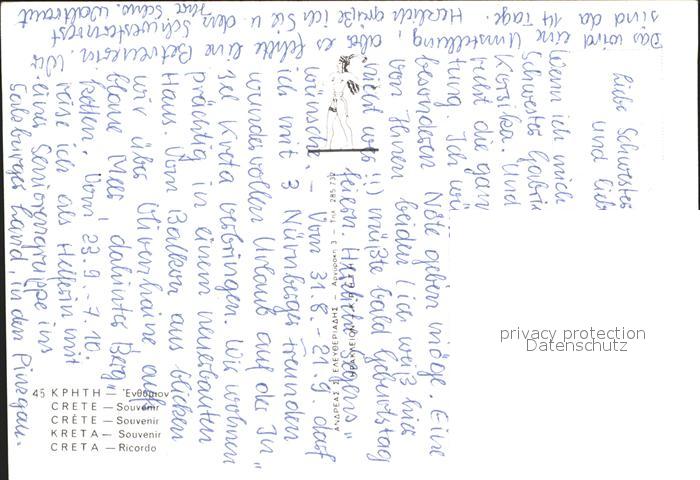 Liebe Schwester
und liebe
Wenn ich mich
Schwester Gabri
Korsika. Und
ruht die gan
tung. Ich wü
besonderen Nöte geben möge. Eine
von Ihnen beiden (ich weiß hier
nicht wer!!) müßte bald Geburtstag
feiern. Herzliche Segens"
wünsche. – Vom 31.8. – 21.9. darf
ich mit 3 Nürnberger Freunden
wundervollen Urlaub auf der In"
sel Kreta verbringen. Wir wohnen
prächtig in einem neuerbauten
Haus. Vom Balkon aus blicken
wir übers Olivenhaine aufs
blaue Meer, dahinter Berg"
ketten. Vom 23.9. – 7.10.
reise ich als Helferin mit
einer Seniorengruppe ins
Salzburger Land, in den Pinzgau.
Das wird eine Umstellung, aber es fehlte eine Betreuerin. Wir
sind da 14 Tage. Herzlich grüße ich Sie u. den Schwesternrest
Ihre Schw. Waltraut
ΑΝΔΡΕΑΣ Σ. ΕΛΕΥΘΕΡΙΑΔΗΣ – Αρχιμήδη 3 – Τηλ. 285.732
ΗΡΑΚΛΕΙΟΝ - ΚΡΗΤΗ
45 ΚΡΗΤΗ — Ἐνθύμιον
CRETE — Souvenir
CRÈTE — Souvenir
KRETA — Souvenir
CRETA — Ricordo
privacy protection
Datenschutz